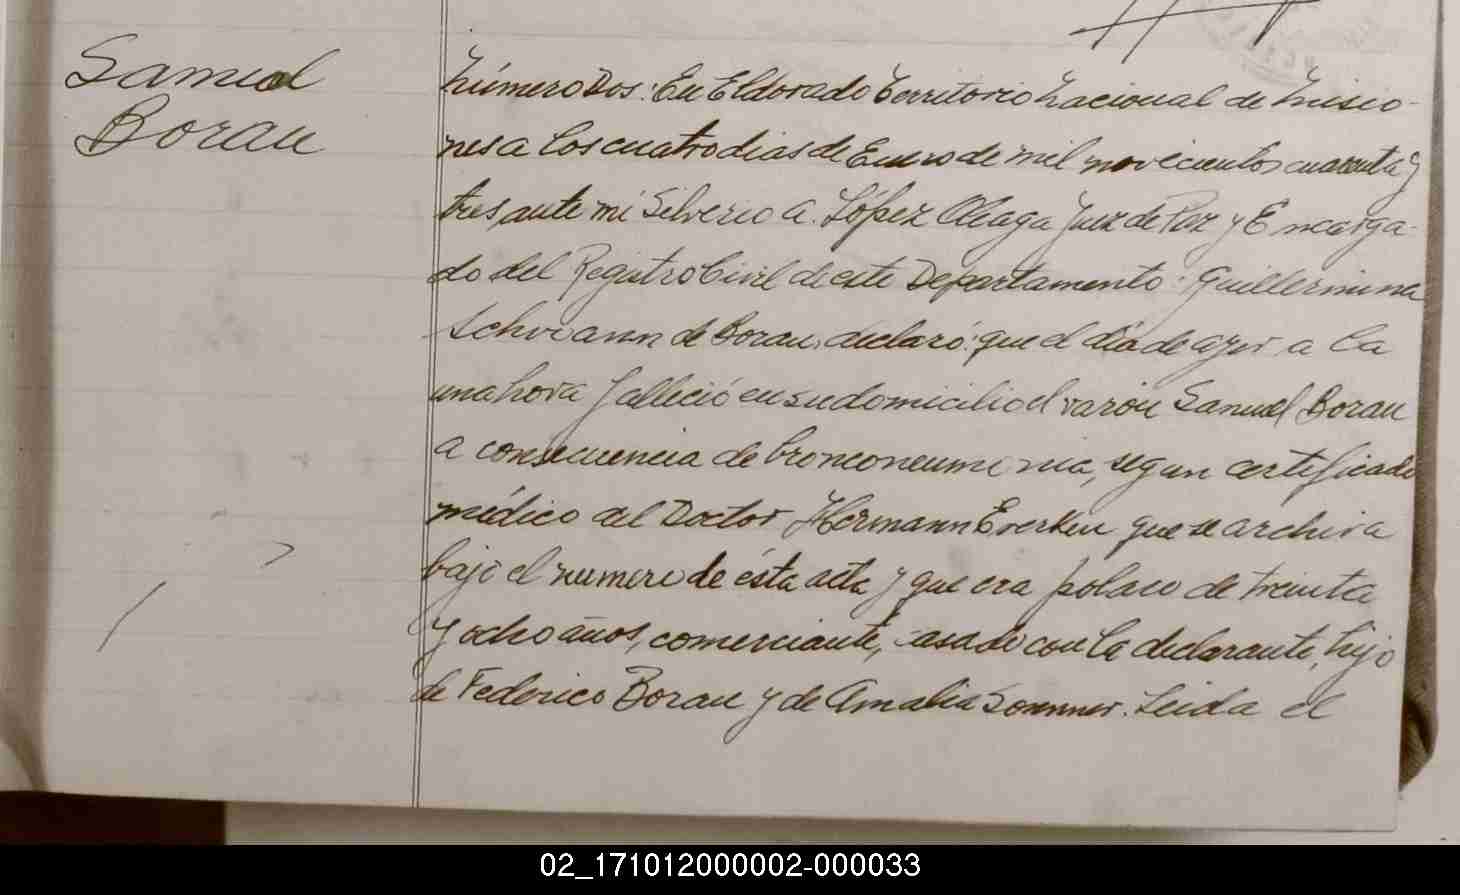 Samuel
Borau
Número Dos: En Eldorado Territorio Nacional de Misio-
nes a los cuatro dias de Enero de mil novecientos cuarenta y
tres, ante mi Silverio A. López Aleaga Juez de Paz y Encarga-
do del Registro Civil de este Departamento: Guillermina
de Borau, declaró: que el día de ayer a la
una hora falleció en su domicilio el varón Samuel Borau
a consecuencia de bronconeumonia, segun certificado
médico del Doctor Hermann Everken que se archiva
bajo el numero de ésta acta y que era polaco de treinta
y ocho años, comerciante, casado con la declarante, hijo
de Federico Borau y de Amalia Sommer. Leida el
02_171012000002-000033